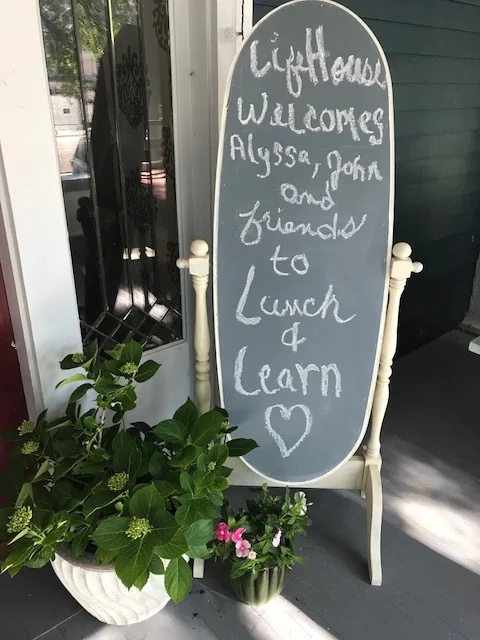 LifeHouse
Welcomes
Alyssa, John
and
friends
to
Lunch
&
Learn